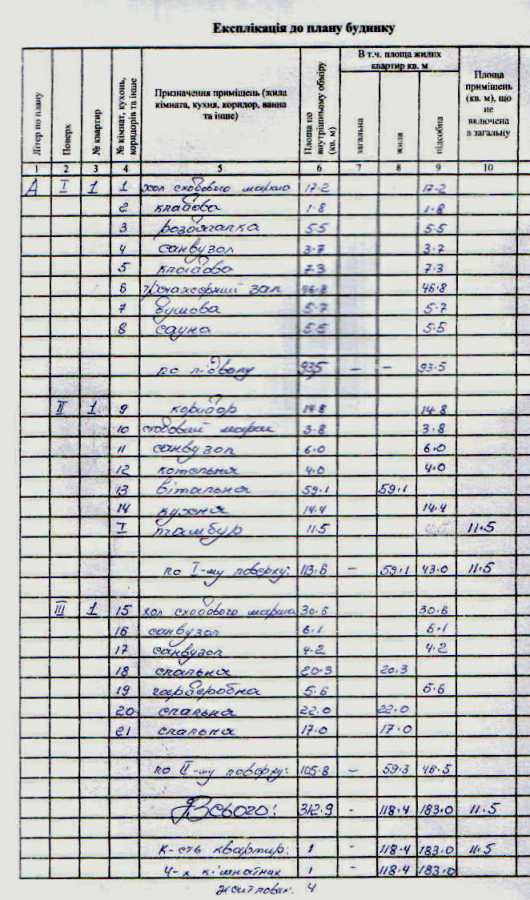 Експлікація до плану будинку
Літер по плану | Поверх | № квартир | № кімнат, кухонь, коридорів та інше | Призначення приміщень (жила кімната, кухня, коридор, ванна та інше) | Площа по внутрішньому обміру (кв. м) | В т.ч. площа жилих квартир кв. м | загальна | жила | підсобна | Площа приміщень (кв. м), що не включена в загальну
1 2 3 4 5 6 7 8 9 10
А I 1 1 хол сходового маршо 17.2 17.2
2 кладова 1.8 1.8
3 роздягалка 5.5 5.5
4 санвузол 3.7 3.7
5 кладова 7.3 7.3
6 тренажерний зал 46.8 46.8
7 душова 5.7 5.7
8 сауна 5.5 5.5
по підвалу 93.5 - - 93.5
II 1 9 коридор 14.8 14.8
10 сходовий марш 3.8 3.8
11 санвузол 6.0 6.0
12 котельня 4.0 4.0
13 вітальна 59.1 59.1
14 кухня 14.4 14.4
I тамбур 11.5 11.5
по I-му поверху: 113.6 - 59.1 43.0 11.5
III 1 15 хол сходового марша 30.6 30.6
16 санвузол 6.1 6.1
17 санвузол 4.2 4.2
18 спальна 20.3 20.3
19 гардеробна 5.6 5.6
20 спальна 22.0 22.0
21 спальна 17.0 17.0
по II-му поверху: 105.8 - 59.3 46.5
Всього: 312.9 - 118.4 183.0 11.5
к-сть квартир: 1 - 118.4 183.0 11.5
4-х кімнатних 1 - 118.4 183.0
житлових. 4